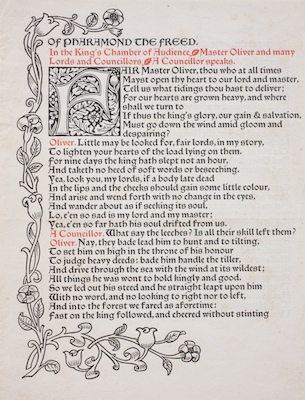 OF PHARAMOND THE FREED.
In the King's Chamber of Audience. Master Oliver and many
Lords and Councillors. A Councillor speaks.
FAIR Master Oliver, thou who at all times
Mayst open thy heart to our lord and master,
Tell us what tidings thou hast to deliver;
For our hearts are grown heavy, and where
shall we turn to
If thus the king's glory, our gain & salvation,
Must go down the wind amid gloom and
despairing?
Oliver. Little may be looked for, fair lords, in my story,
To lighten your hearts of the load lying on them.
For nine days the king hath slept not an hour,
And taketh no heed of soft words or beseeching.
Yea, look you, my lords, if a body late dead
In the lips and the cheeks should gain some little colour,
And arise and wend forth with no change in the eyes,
And wander about as if seeking its soul,
Lo, e'en so sad is my lord and my master;
Yea, e'en so far hath his soul drifted from us.
A Councillor. What say the leeches? Is all their skill left them?
Oliver. Nay, they bade lead him to hunt and to tilting,
To set him on high in the throne of his honour
To judge heavy deeds: bade him handle the tiller,
And drive through the sea with the wind at its wildest;
All things he was wont to hold kingly and good.
So we led out his steed and he straight leapt upon him
With no word, and no looking to right nor to left,
And into the forest we fared as aforetime:
Fast on the king followed, and cheered without stinting